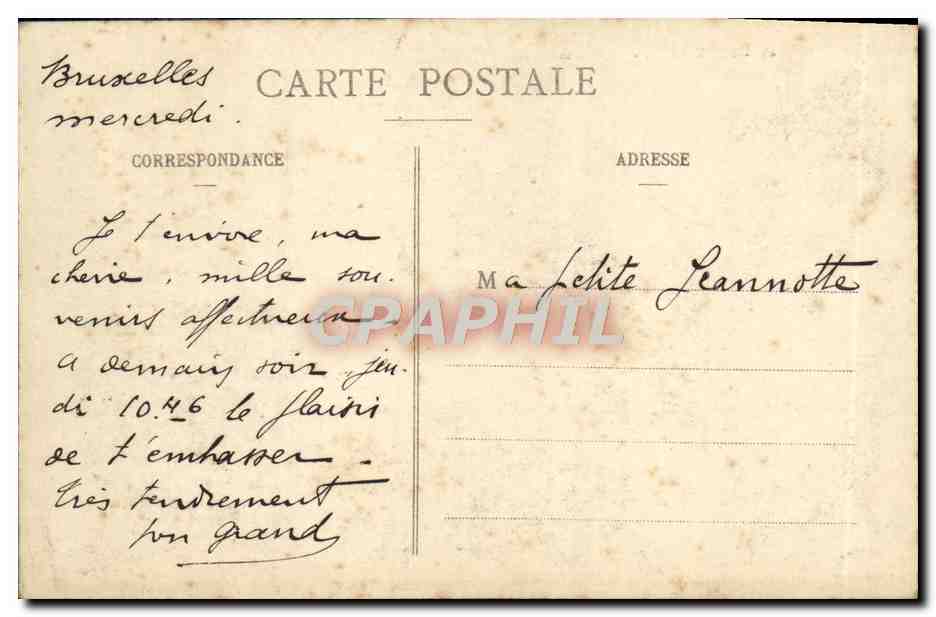 Bruxelles
mercredi.
CARTE POSTALE
CORRESPONDANCE
Je t'envoie, ma
cherie, mille sou-
venirs affectueux
a demain soir, jeu-
di 10.46 le plaisir
de t'embrasser.
très tendrement
ton grand
ADRESSE
Ma petite Jeannotte
CPAPHIL